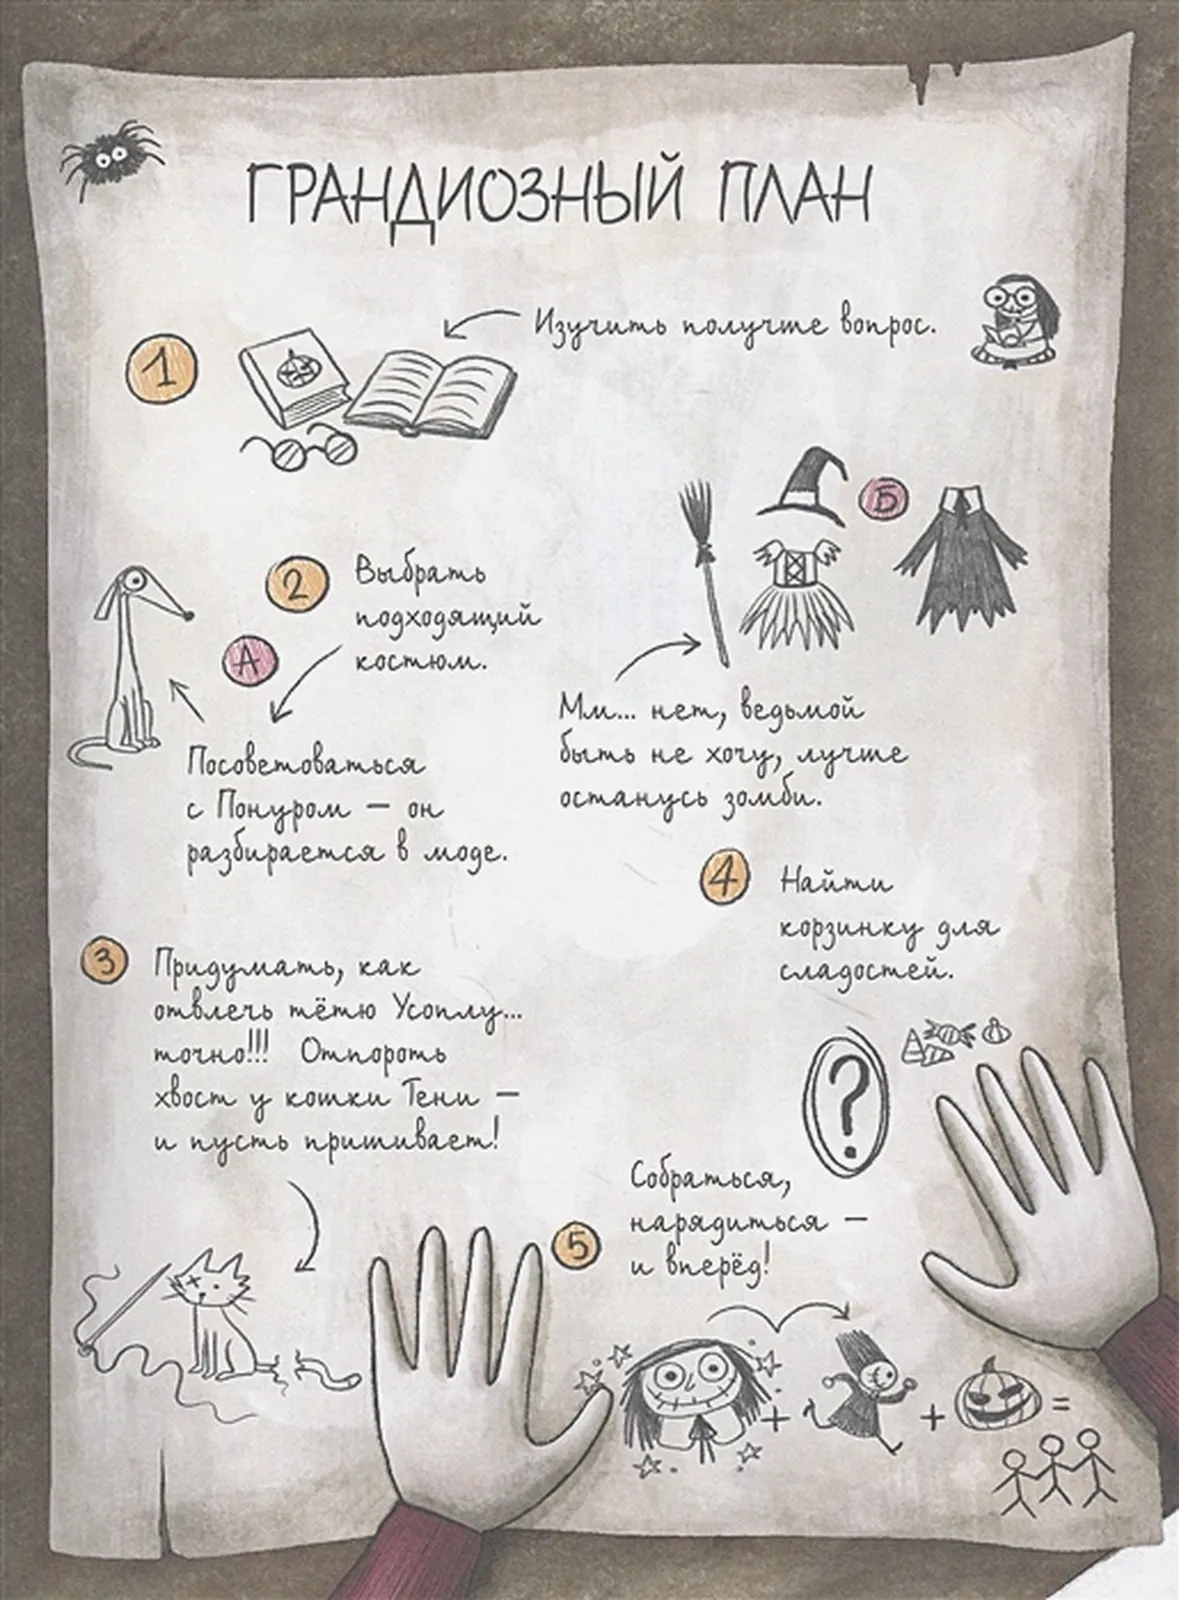 ГРАНДИОЗНЫЙ ПЛАН
1
Изучить получше вопрос.
2
Выбрать
подходящий
костюм.
А
Посоветоваться
с Понуром — он
разбирается в моде.
Б
Мм... нет, ведьмой
быть не хочу, лучше
останусь зомби.
3
Придумать, как
отвлечь тётю Усоплу...
точно!!! Отпороть
хвост у кошки Тени —
и пусть пришивает!
4
Найти
корзинку для
сладостей.
?
5
Собраться,
нарядиться —
и вперёд!
+ + =